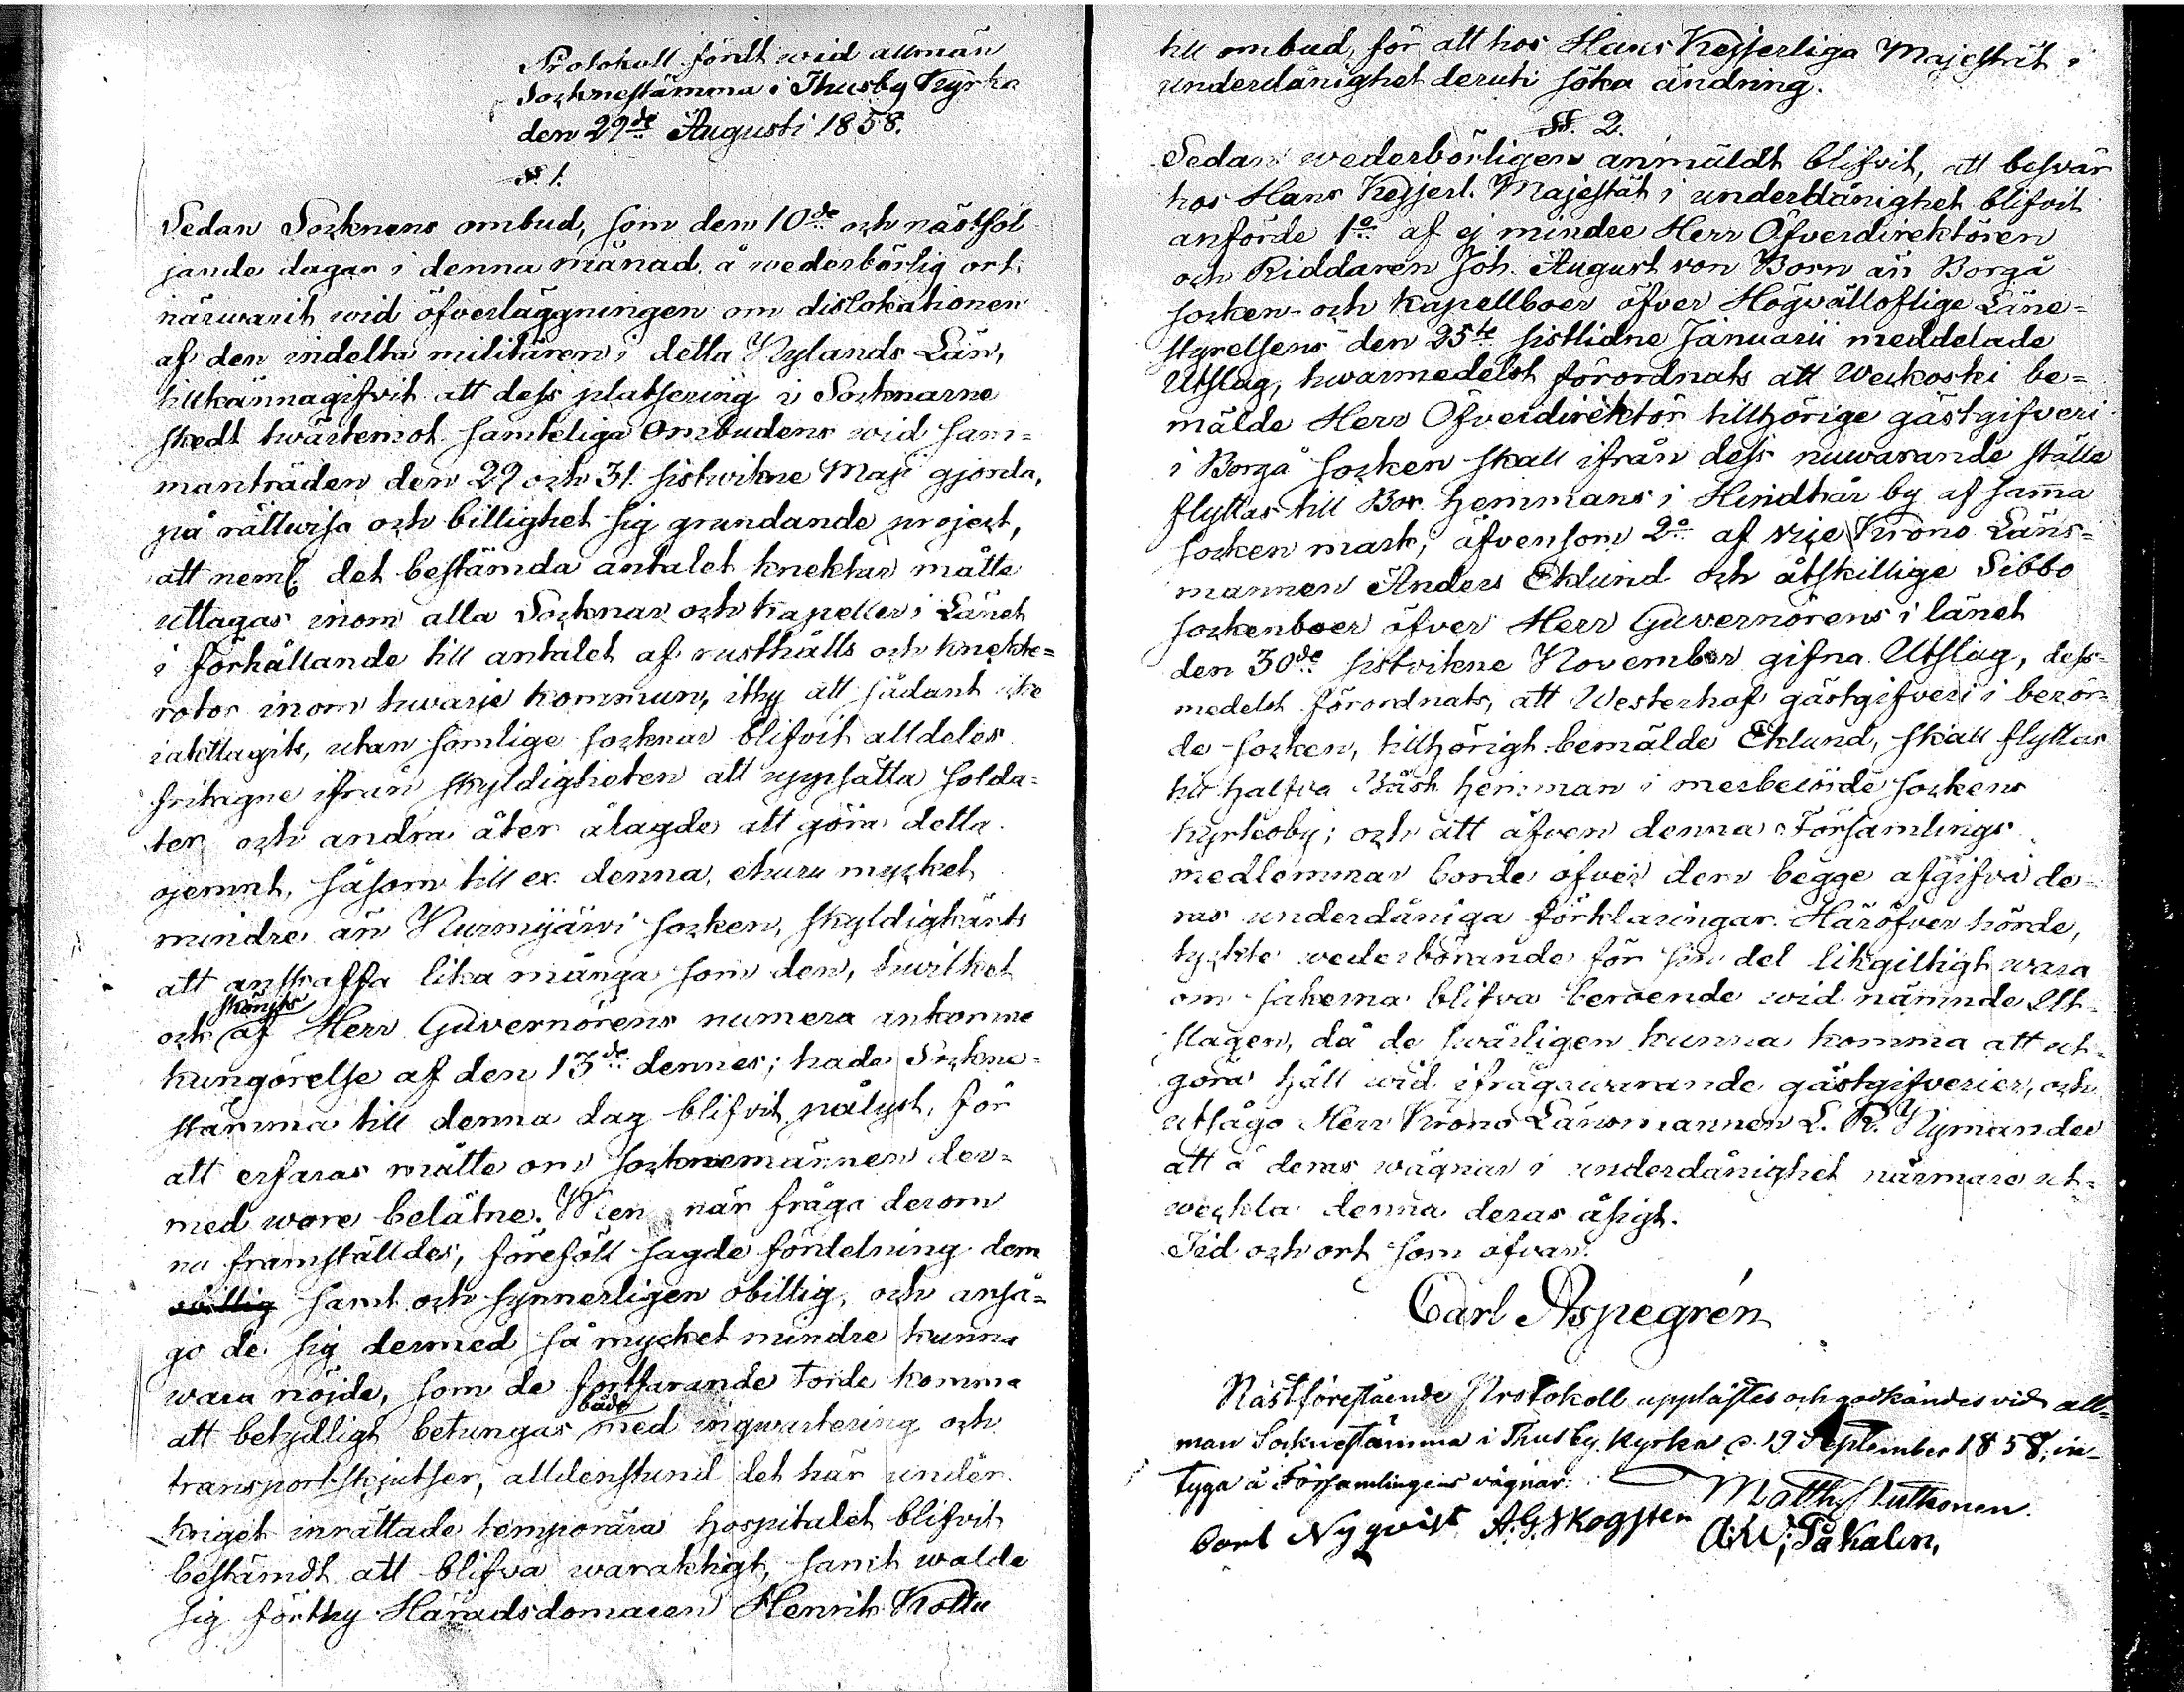 Protokoll fördt wid allmän
Socknestämma i Thusby Kyrka
den 29de Augusti 1858.
§. 1.
Sedan Socknens ombud, som den 10de och nästföl
jande dagar i denna månad, å wederbörlig ort
närwarit wid öfverläggningen om dislokationen
af den indelta militären i detta Nylands Län,
tillkännagifvit att dess platsering i Socknarne
skedt twärtemot samteliga Ombudens wid sam=
manträden den 29 och 31 sistwikne Maji gjorda,
på rättwisa och billighet sig grundande project,
att neml. det bestämda antalet knektar måtte
uttagas inom alla Socknar och Kapeller i Länet
i förhållande till antalet af rusthålls och knekte=
rotor inom hwarje kommun, ithy att sådant icke
iakttagits, utan somlige socknar blifvit alldeles
fritagne ifrån skyldigheten att uppsätta solda=
ter och andra åter ålagde att göra detta
ojemnt, såsom till ex. denna, ehuru mycket
mindre än Nurmijärvi socken, skyldigkänts
att anskaffa lika många som den, hwilket
skönjts
och af Herr Guvernörens numera ankomne
kungörelse af den 13de dennes; hade Sockne=
stämma till denna dag blifvit pålyst, för
att erfaras måtte om socknemännen der=
med wore belåtne. Men när fråga derom
nu framställdes, föreföll sagde fördelning dem
obillig samt och synnerligen obillig, och anså=
go de sig dermed så mycket mindre kunna
wara nöjde, som de fortfarande torde komma
både
att betydligt betungas med inqwartering och
transportskjutser, alldenstund det här under
kriget inrättade temporära hospitalet blifvit
bestämdt att blifva waraktigt, samt walde
sig förthy Häradsdomaren Henrik Kotti
till ombud, för att hos Hans Kejserliga Majestät i
underdånighet deruti söka ändring.
§. 2.
Sedan wederbörligen anmäldt blifvit, att besvär
hos Hans Kejserl. Majestät i underdånighet blifvit
anförde 1o af ej mindre Herr Öfverdirektören
och Riddaren Joh. August von Born än Borgå
socken- och Kapellboer öfver Högvälloflige Läne=
styrelsens den 25te sistlidne Januarii meddelade
Utslag, hwarmedelst förordnats att Weckoski be=
mälde Herr Öfverdirektör tillhörige gästgifveri
i Borgå socken skall ifrån dess nuwarande ställe
flyttas till Bos hemmans i Hindhår by af samma
socken mark; äfvensom 2o af vice Krono Läns=
mannen Anders Eklund och åtskillige Sibbo
sockenboer öfver Herr Guvernörens i länet
den 30de sistvikne November gifna Utslag, dess=
medelst förordnats, att Westerhof gästgifveri i berör=
de socken, tillhörigt bemälde Eklund, skall flyttas
till halfva Bäck hemman i merberörde sockens
kyrkoby; och att äfven denna Församlings
medlemmar borde öfver dem begge afgifva de=
ras underdåniga förklaringar. Häröfver hörde,
tyckte wederbörande för sin del likgiltigt wara
om sakerna blifva beroende wid nämnde Ut=
slagen, då de swårligen kunna komma att ut=
göra håll wid ifrågawarande gästgifverier, och
utsågo Herr Krono Länsmannen L. R. Nymander
att å deras wägnar i underdånighet närmare ut=
weckla denna deras åsigt.
Tid och ort som ofvan.
Carl Aspegrén
Nästförestående Protokoll upplästes och godkändes vid all=
män Socknestämma i Thusby Kyrka d. 19 September 1858, in=
tyga å Församlingens vägnar:
Matths Luttonen.
Carl Nyqvist A.G. Skogsten
A:W: Påkalen,